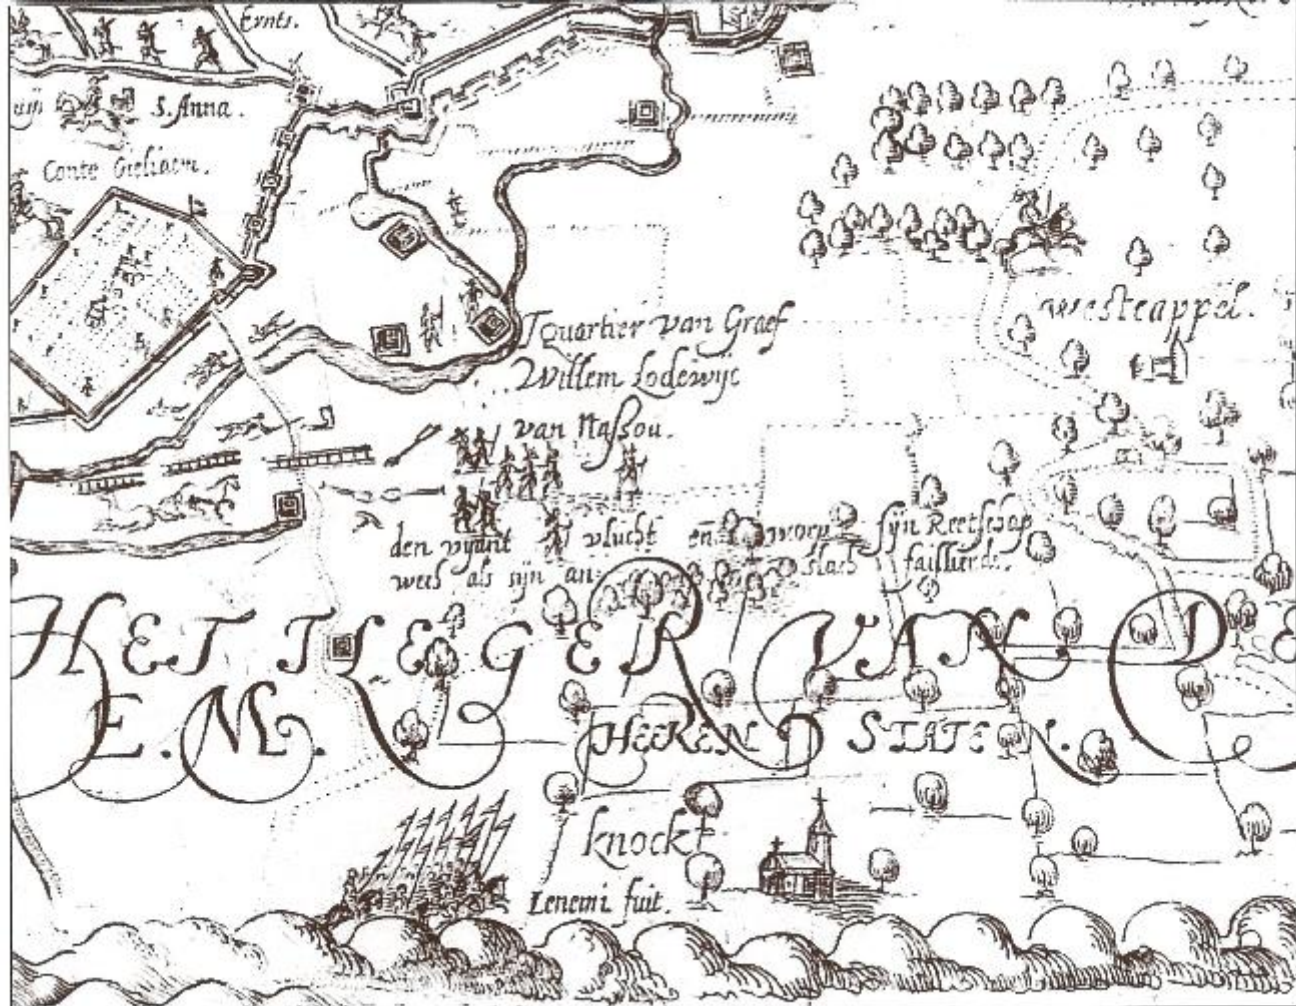 Ernts.
S. Anna.
Conte Gieliam.
westcappel.
Tquartier van Graef
Willem Lodewijc
van Naſsou.
den vyant vlucht en worp sijn Reetschap
wech als sijn an= slach faillierde.
HET LEGER VAN DE
E.M. HEEREN STATEN.
knockt
Lenemi fuit.